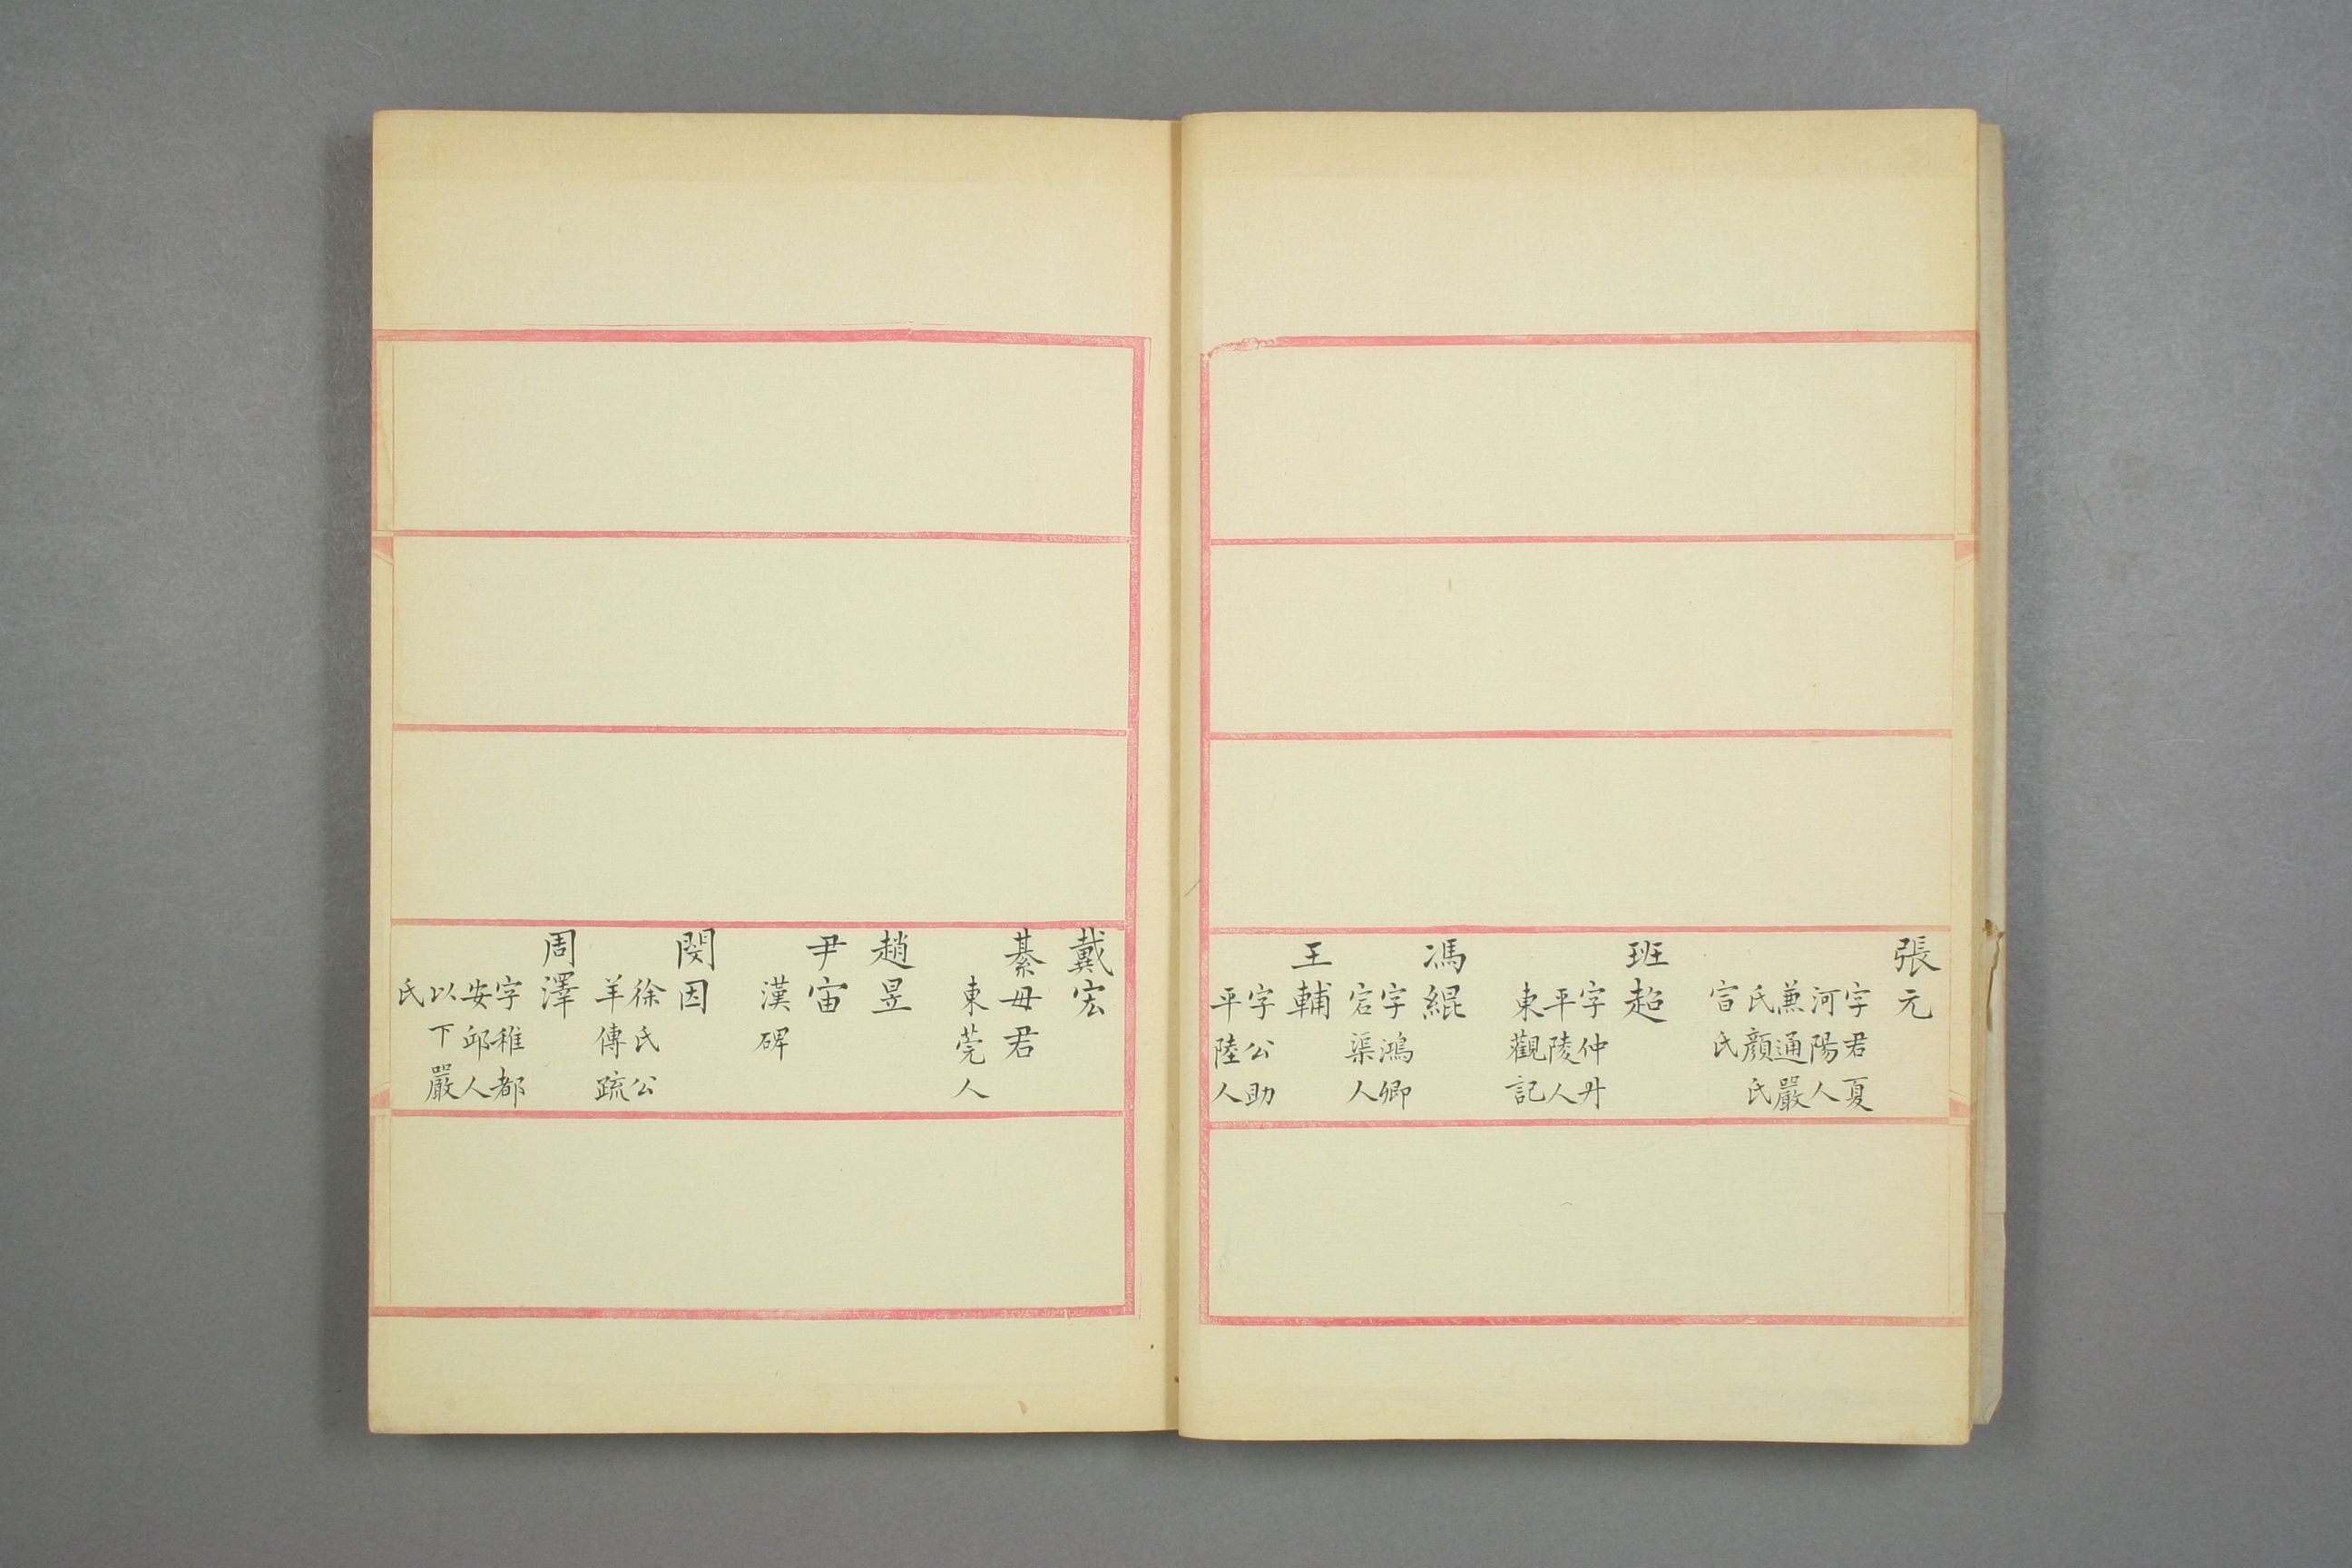 張元
字君夏
河陽人
兼通嚴
氏顏氏
宫氏
班超
字仲升
平陵人
東觀記
馮緄
字鴻卿
宕渠人
王輔
字公助
平陸人
戴宏
綦毋君
東莞人
趙昱
尹宙
漢碑
閔因
徐氏公
羊傳疏
周澤
字稚都
安邱人
以下嚴
氏